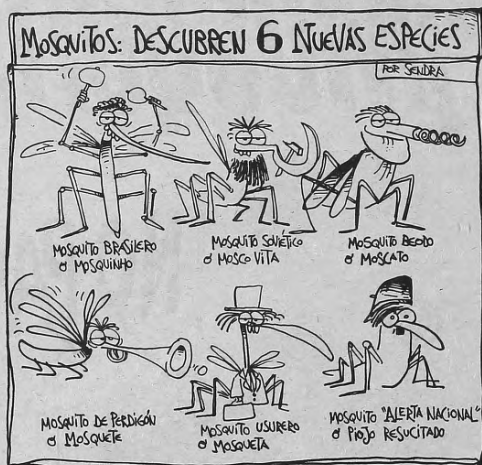 MOSQUITOS: DESCUBREN 6 NUEVAS ESPECIES
POR SENDRA
MOSQUITO BRASILERO
O MOSQUINHO
MOSQUITO SOVIÉTICO
O MOSCO VITA
MOSQUITO BEODO
O MOSCATO
MOSQUITO DE PERDIGÓN
O MOSQUETE
MOSQUITO USURERO
O MOSQUETA
MOSQUITO "ALERTA NACIONAL"
O PIOJO RESUCITADO